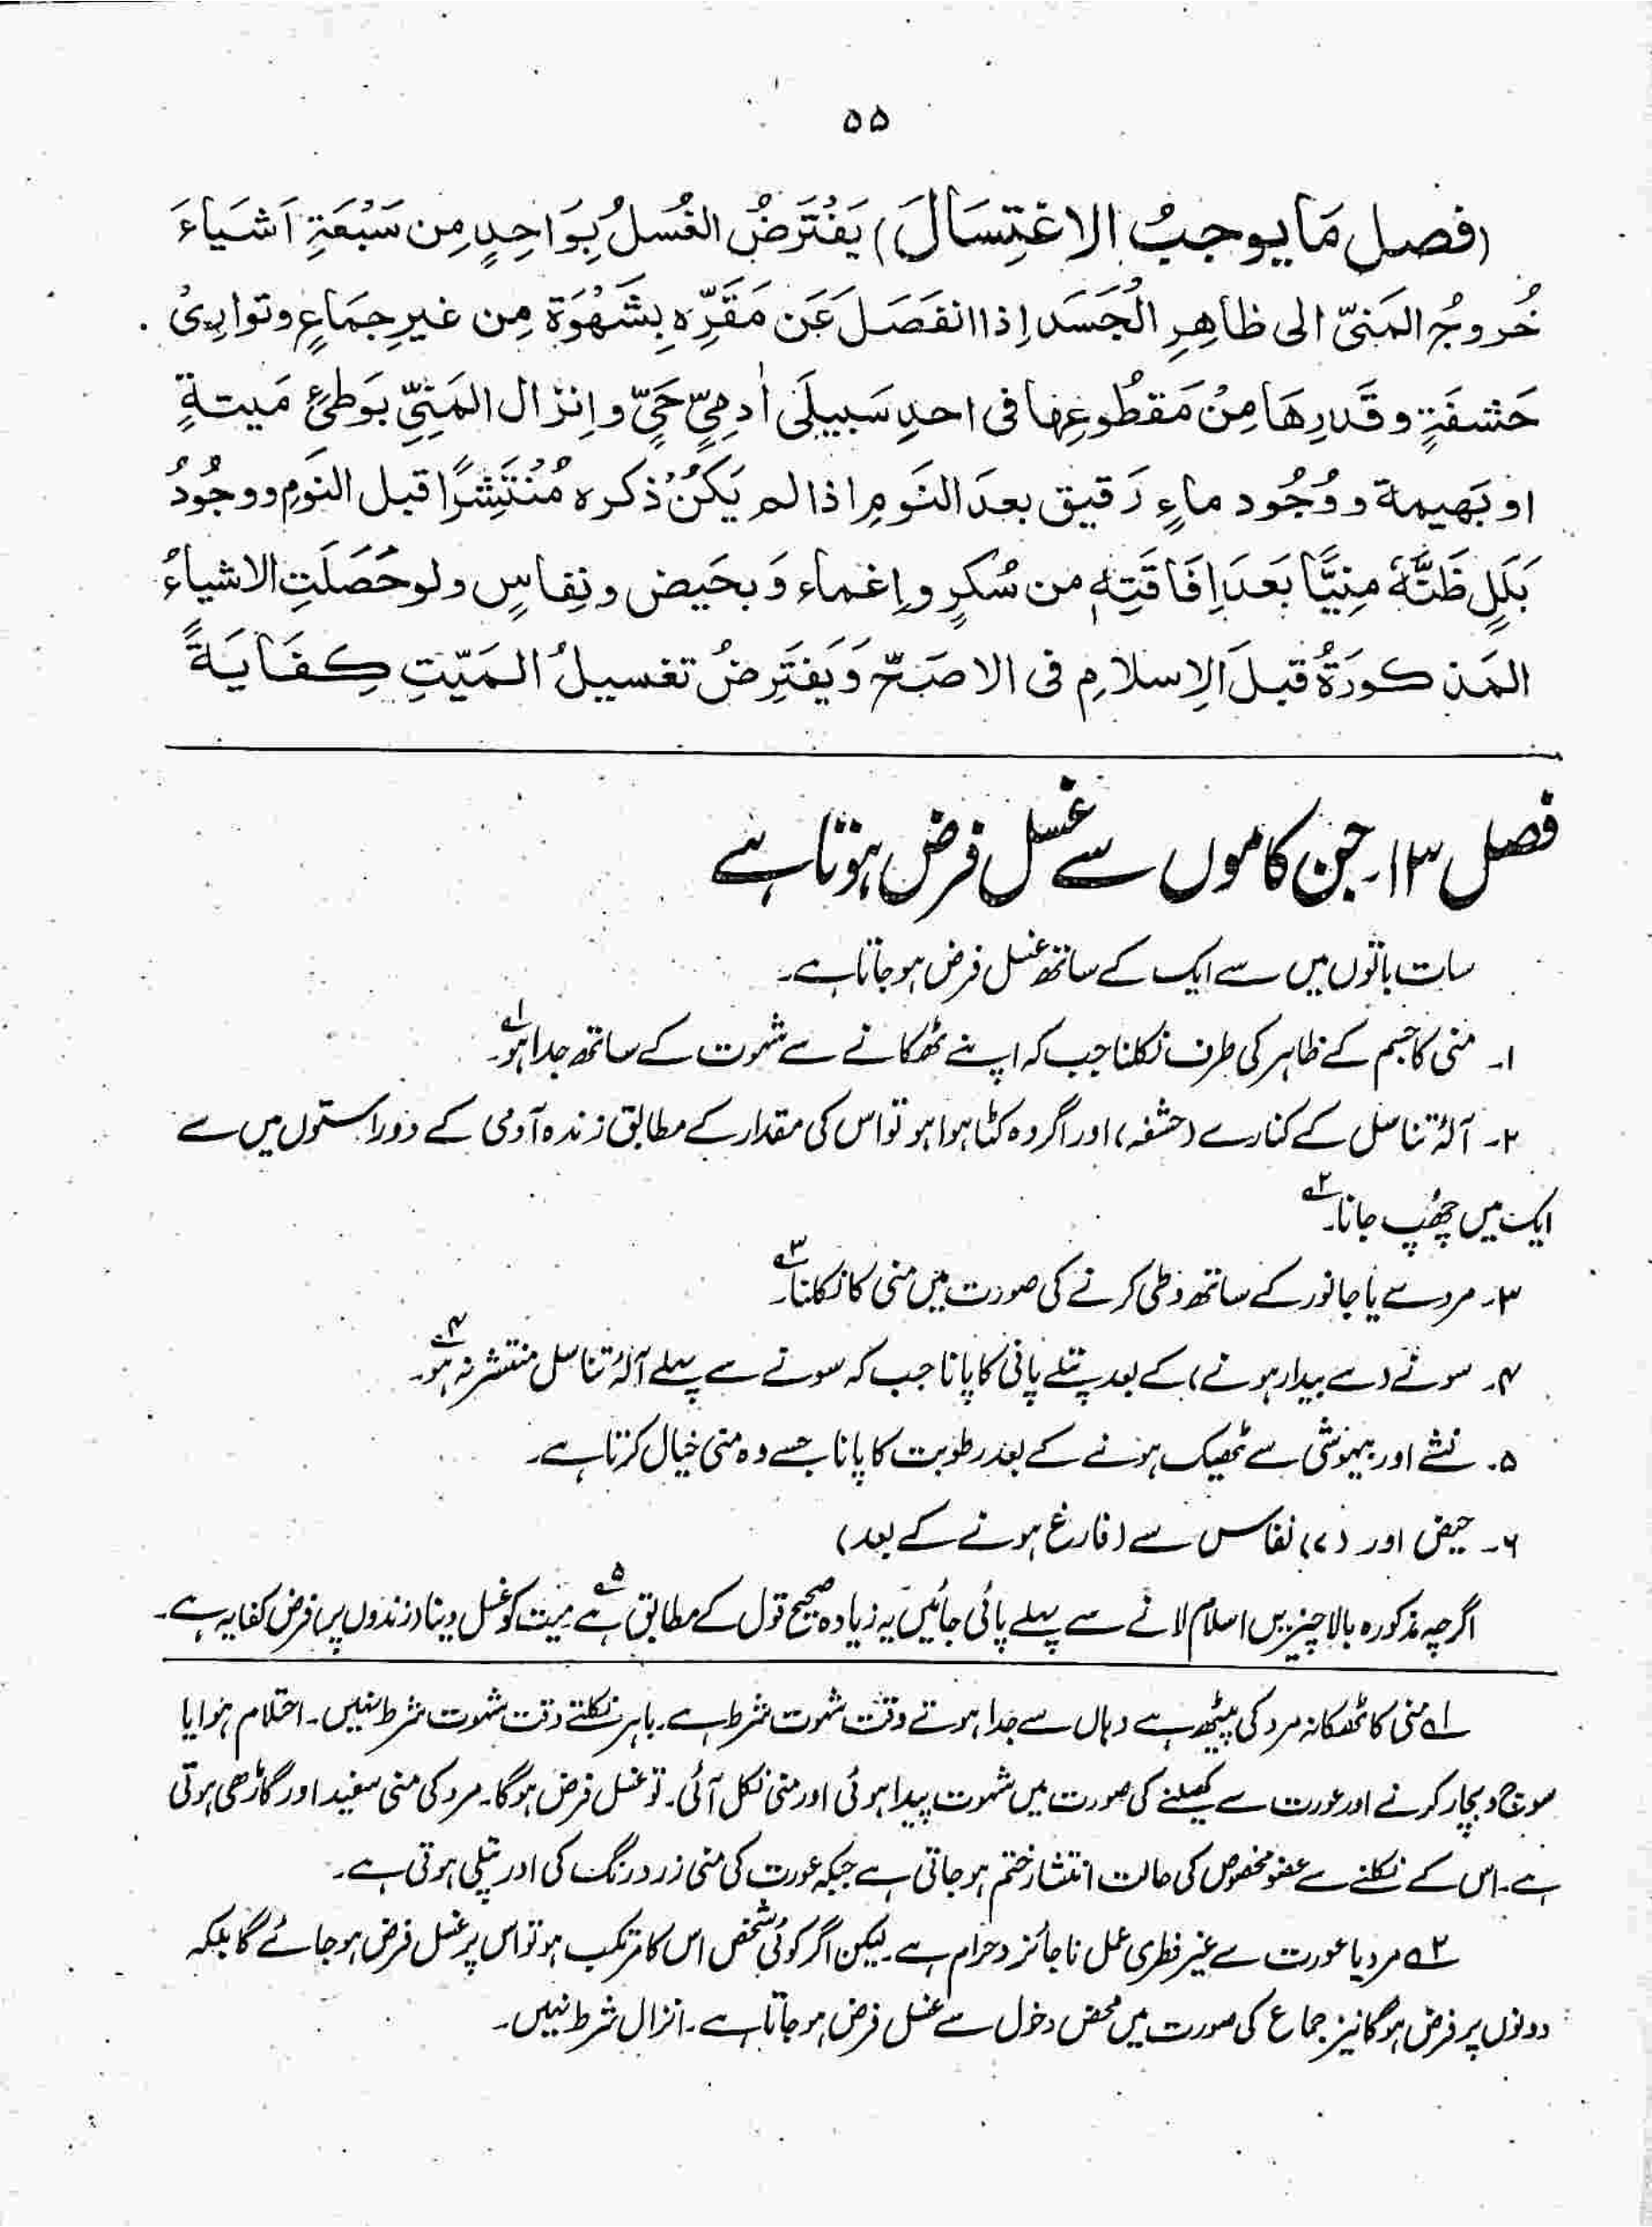 ۵۵
(فصل مَا یوجبُ الاغتِسَالَ) یَفْتَرَضُ الغُسلُ بِوَاحِدٍ مِن سَبْعَةِ اَشیَاءَ
خُروجُ المَنیّ الی ظاهِرِ الْجَسَدِ اِذا انفَصَلَ عَن مَقَرِّہٖ بِشَهْوَۃٍ مِن غیرِ جِمَاعٍ وتوارِیْ
حَشفَةٍ وقَدرِهَا مِنْ مَقطُوعِها فی احدِ سَبیلَی اٰدمِیٍّ حَیٍّ واِنزال المَنِیِّ بوَطیِٔ مَیتةٍ
او بَهیمة ووُجُود ماءٍ رَقیق بعدَ النَومِ اذا لم یَکُنْ ذکرہ مُنْتَشِرًا قبل النَومِ ووجُودُ
بَلَلٍ ظَنَّهٗ مَنِیًّا بَعدَ اِفَاقَتِهٖ من سُکرٍ واِغماء وَبحَیض ونِفاسٍ ولو حَصَلَتِ الاشیاءُ
المَذکورَۃُ قبلَ الاِسلامِ فی الاصَحّ وَیَفتَرِضُ تغسیلُ المَیّتِ کِفَایَةً
فصل ۱۳۔ جن کاموں سے غسل فرض ہوتا ہے
سات باتوں میں سے ایک کے ساتھ غسل فرض ہو جاتا ہے۔
۱۔ منی کا جسم کے ظاہر کی طرف نکلنا جب کہ اپنے ٹھکانے سے شہوت کے ساتھ جدا ہو۔ ۱ے
۲۔ آلۂ تناسل کے کنارے (حشفہ) اور اگر وہ کٹا ہوا ہو تو اس کی مقدار کے مطابق زندہ آدمی کے دو راستوں میں سے
ایک میں چھُپ جانا۔ ۲ے
۳۔ مردے یا جانور کے ساتھ وطی کرنے کی صورت میں منی کا نکلنا۔ ۳ے
۴۔ سونے (سے بیدار ہونے) کے بعد پتلے پانی کا پانا جب کہ سونے سے پہلے آلۂ تناسل منتشر نہ ہو۔ ۴ے
۵۔ نشے اور بیہوشی سے ٹھیک ہونے کے بعد رطوبت کا پانا جسے وہ منی خیال کرتا ہے۔
۶۔ حیض اور (۷) نفاس سے (فارغ ہونے کے بعد)
اگرچہ مذکورہ بالا چیزیں اسلام لانے سے پہلے پائی جائیں یہ زیادہ صحیح قول کے مطابق ہے ۵ے میت کو غسل دینا (زندوں پر) فرض کفایہ ہے۔
۱ے منی کا ٹھکانہ مرد کی پیٹھ ہے وہاں سے جدا ہوتے وقت شہوت شرط ہے۔ باہر نکلتے وقت شہوت شرط نہیں۔ احتلام ہوا یا
سوچ و بچار کرنے اور عورت سے کھیلنے کی صورت میں شہوت پیدا ہوئی اور منی نکل آئی۔ تو غسل فرض ہوگا۔ مرد کی منی سفید اور گاڑھی ہوتی
ہے۔ اس کے نکلنے سے عضو مخصوص کی حالت انتشار ختم ہو جاتی ہے جبکہ عورت کی منی زرد رنگ کی اور پتلی ہوتی ہے۔
۲ے مرد یا عورت سے غیر فطری عمل ناجائز و حرام ہے۔ لیکن اگر کوئی شخص اس کا مرتکب ہو تو اس پر غسل فرض ہو جائے گا بلکہ
دونوں پر فرض ہوگا نیز جماع کی صورت میں محض دخول سے غسل فرض ہو جاتا ہے۔ انزال شرط نہیں۔